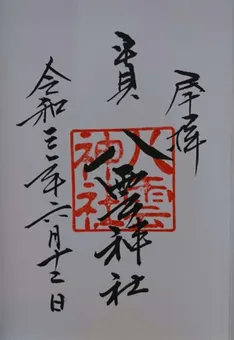 奉拝
平貝
八雲神社
八雲
神社
令和三年六月十二日